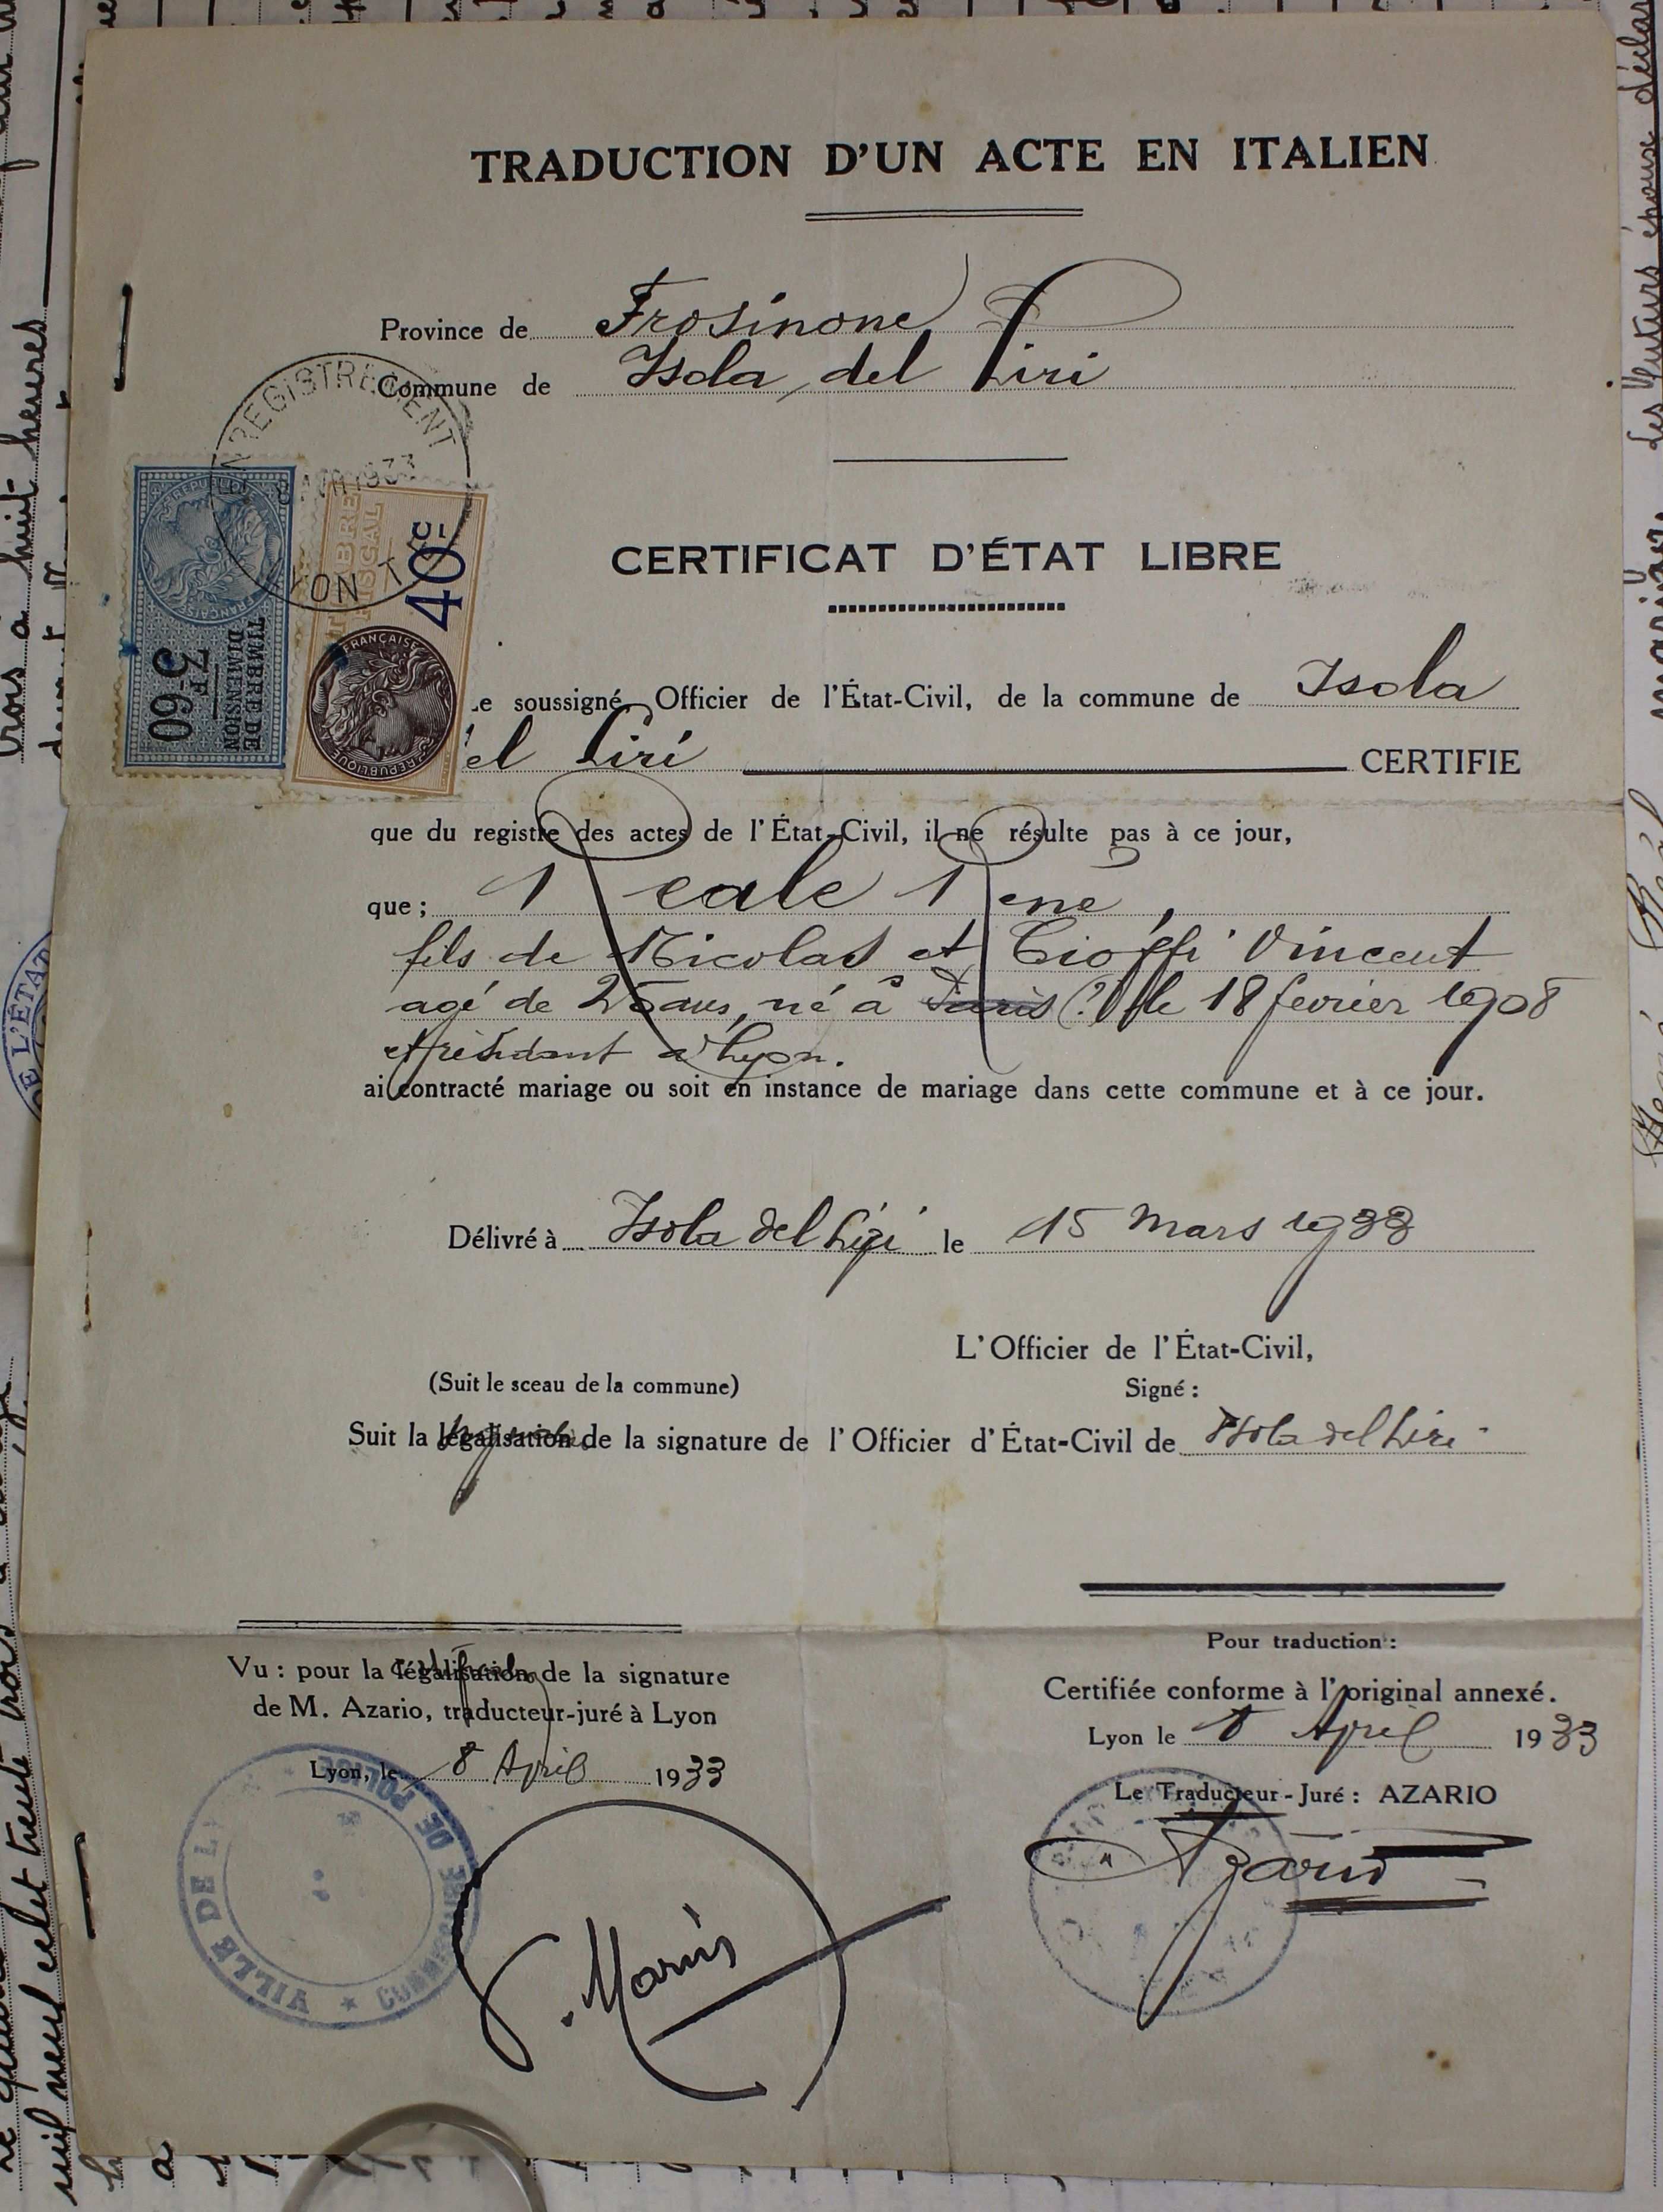 TRADUCTION D'UN ACTE EN ITALIEN
Province de Frosinone
Commune de Isola del Liri
ENREGISTREMENT
AVR 1933
LYON
RÉPUBLIQUE FRANÇAISE
TIMBRE DE DIMENSION
3F60
TIMBRE FISCAL
40c
RÉPUBLIQUE FRANÇAISE
CERTIFICAT D'ÉTAT LIBRE
Le soussigné, Officier de l'État-Civil, de la commune de Isola
del Liri CERTIFIE
que du registre des actes de l'État-Civil, il ne résulte pas à ce jour,
que; Reale René,
fils de Nicolas et Cioffi Vincent
agé de 25 ans, né à Paris (?) le 18 février 1908
et résidant à Lyon.
ai contracté mariage ou soit en instance de mariage dans cette commune et à ce jour.
Délivré à Isola del Liri le 15 Mars 1933
L'Officier de l'État-Civil,
(Suit le sceau de la commune) Signé:
Suit la légalisation de la signature de l'Officier d'État-Civil de Isola del Liri
Pour traduction:
Vu: pour la légalisation de la signature
de M. Azario, traducteur-juré à Lyon
Lyon, le 8 April 1933
Certifiée conforme à l'original annexé.
Lyon le 8 April 1933
Le Traducteur-Juré: AZARIO
Azario
VILLE DE LYON
COMMISSAIRE DE POLICE